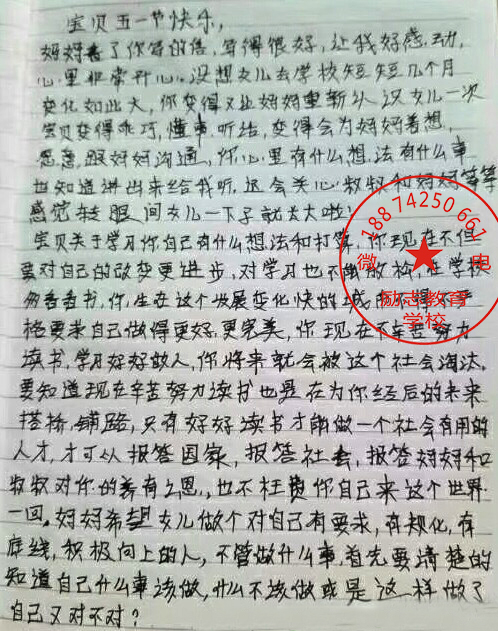 宝贝五一节快乐,
妈妈看了你写的信,写得很好,让我好感动,
心里非常开心。没想女儿去学校短短几个月
变化如此大,你变得又让妈妈重新认识女儿一次
宝贝变得乖巧,懂事,听话,变得会为妈妈着想,
愿意跟妈妈沟通,你心里有什么想法有什么事
也知道讲出来给我听,还会关心叔叔和妈妈等等
感觉转眼间女儿一下子就长大啦!
宝贝关于学习你自己有什么想法和打算,你现在不但
要对自己的改变更进步,对学习也不能放松,在学校
多看看书,你生在这个发展变化快的城
格要求自己做得更好,更完美,你现在不辛苦努力
读书,学习好好做人,你将来就会被这个社会淘汰,
要知道现在辛苦努力读书也是在为你经后的未来
搭桥,铺路,只有好好读书才能做一个社会有用的
人才,才可以报答国家,报答社会,报答妈妈和
叔叔对你的养育之恩,也不枉费你自己来这个世界
一回。妈妈希望女儿做个对自己有要求,有规化,有
底线,积极向上的人,不管做什么事,首先要清楚的
知道自己什么事该做,什么不该做或是这样做了
自己又对不对?
18874250661
微 电
励志教育
学校